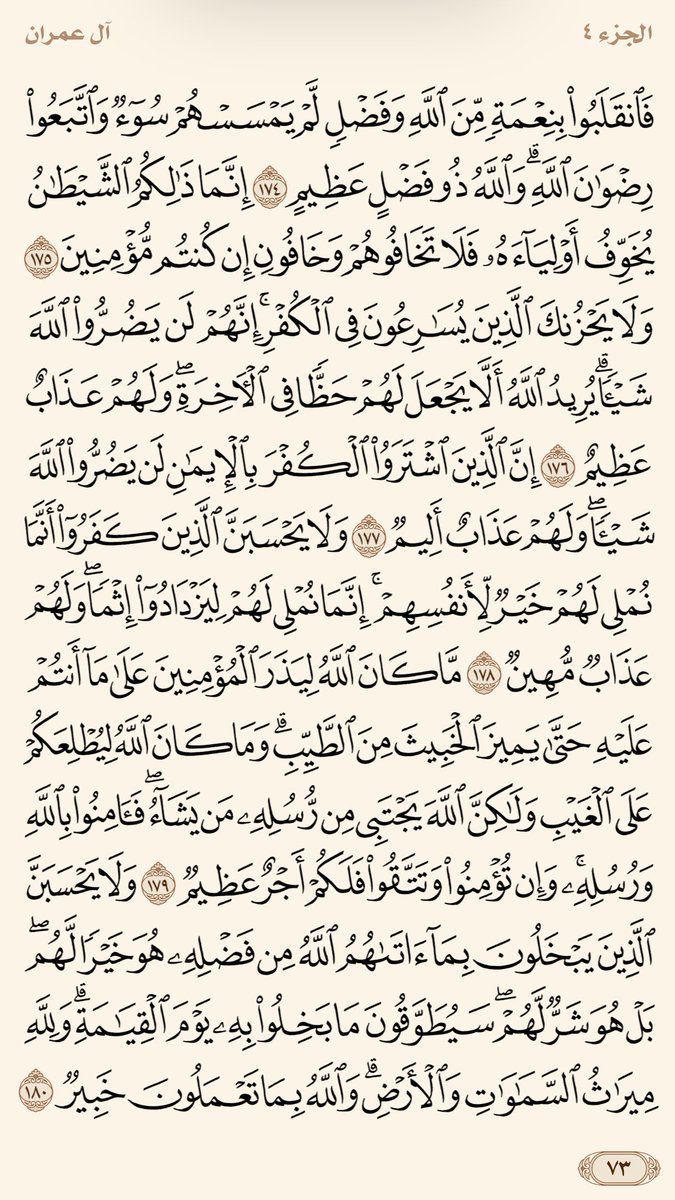 الجزء ٤
آل عمران
فَٱنقَلَبُوا۟ بِنِعْمَةٍ مِّنَ ٱللَّهِ وَفَضْلٍ لَّمْ يَمْسَسْهُمْ سُوٓءٌ وَٱتَّبَعُوا۟
رِضْوَٰنَ ٱللَّهِ ۗ وَٱللَّهُ ذُو فَضْلٍ عَظِيمٍ ١٧٤ إِنَّمَا ذَٰلِكُمُ ٱلشَّيْطَٰنُ
يُخَوِّفُ أَوْلِيَآءَهُۥ فَلَا تَخَافُوهُمْ وَخَافُونِ إِن كُنتُم مُّؤْمِنِينَ ١٧٥
وَلَا يَحْزُنكَ ٱلَّذِينَ يُسَٰرِعُونَ فِى ٱلْكُفْرِ ۚ إِنَّهُمْ لَن يَضُرُّوا۟ ٱللَّهَ
شَيْـًٔا ۗ يُرِيدُ ٱللَّهُ أَلَّا يَجْعَلَ لَهُمْ حَظًّا فِى ٱلْـَٔاخِرَةِ ۖ وَلَهُمْ عَذَابٌ
عَظِيمٌ ١٧٦ إِنَّ ٱلَّذِينَ ٱشْتَرَوُا۟ ٱلْكُفْرَ بِٱلْإِيمَٰنِ لَن يَضُرُّوا۟ ٱللَّهَ
شَيْـًٔا ۖ وَلَهُمْ عَذَابٌ أَلِيمٌ ١٧٧ وَلَا يَحْسَبَنَّ ٱلَّذِينَ كَفَرُوٓا۟ أَنَّمَا
نُمْلِى لَهُمْ خَيْرٌ لِّأَنفُسِهِمْ ۚ إِنَّمَا نُمْلِى لَهُمْ لِيَزْدَادُوٓا۟ إِثْمًا ۖ وَلَهُمْ
عَذَابٌ مُّهِينٌ ١٧٨ مَّا كَانَ ٱللَّهُ لِيَذَرَ ٱلْمُؤْمِنِينَ عَلَىٰ مَآ أَنتُمْ
عَلَيْهِ حَتَّىٰ يَمِيزَ ٱلْخَبِيثَ مِنَ ٱلطَّيِّبِ ۗ وَمَا كَانَ ٱللَّهُ لِيُطْلِعَكُمْ
عَلَى ٱلْغَيْبِ وَلَٰكِنَّ ٱللَّهَ يَجْتَبِى مِن رُّسُلِهِۦ مَن يَشَآءُ ۖ فَـَٔامِنُوا۟ بِٱللَّهِ
وَرُسُلِهِۦ ۚ وَإِن تُؤْمِنُوا۟ وَتَتَّقُوا۟ فَلَكُمْ أَجْرٌ عَظِيمٌ ١٧٩ وَلَا يَحْسَبَنَّ
ٱلَّذِينَ يَبْخَلُونَ بِمَآ ءَاتَىٰهُمُ ٱللَّهُ مِن فَضْلِهِۦ هُوَ خَيْرًا لَّهُم ۖ
بَلْ هُوَ شَرٌّ لَّهُمْ ۖ سَيُطَوَّقُونَ مَا بَخِلُوا۟ بِهِۦ يَوْمَ ٱلْقِيَٰمَةِ ۗ وَلِلَّهِ
مِيرَٰثُ ٱلسَّمَٰوَٰتِ وَٱلْأَرْضِ ۗ وَٱللَّهُ بِمَا تَعْمَلُونَ خَبِيرٌ ١٨٠
٧٣